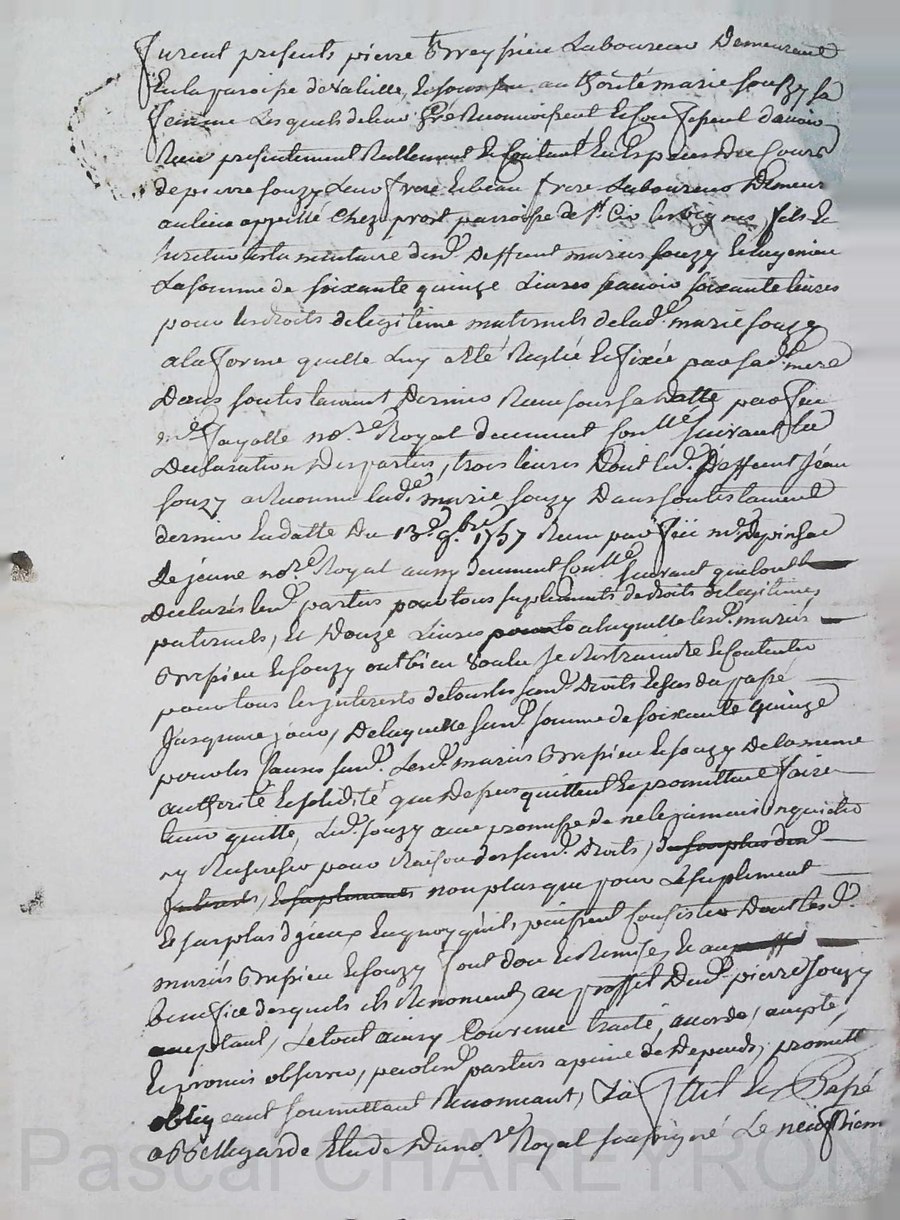 furent presents pierre laboureur Demeurant
En la paroisse de Valeille, Et sous son authorité marie souzy sa
femme Lesquels de leur Gré Reconnoissent Et confessent d'avoir
Receu presentement Reellement Et Comtant En Espèces de Cours
de pierre souzy Leur frere Et beau frere Laboureur Demeur
au lieu appellé Chez prost parroisse de St. Cir les vignes, fils Et
heritier testamentaire du d. Deffunt marius souzy
La somme de soixante quinze Livres sçavoir soixante livres
pour les droits de legitime maternels de lad. marie souzy
a la forme quelle Luy a Eté Reglée Et fixée par sa d. mere
Dans son testament Dernier Receu sous sa Datte par feu
me. jayolle nore. Royal deument Conlle. suivant la
Declaration Des parties, trois livres Dont led. Deffunt jean
souzy a lad. marie souzy Dans son testament
dernier En datte Du 13e. 9bre. 1757 Receu par feu me. Depinhac
Le jeune nore. Royal aussy deument Conlle. suivant quil ont
Declarés lesd. parties pour tous suplements de droits de legitimes
paternels, Et Douze Livres a laquelle lesd. mariés
Et souzy ont bien Voulu se Restraindre Et Contenter
pour tous les interests de tous les susd. Droits Et cas du passé
jusqu'a ce jour, De laquelle susd. somme de soixante quinze
pour les causes susd. Lesd. mariés Et souzy De la meme
authorité Et solidité que Dessus quittent Et promettent faire
tenir quitte, Led. souzy avec promesse de ne le jamais inquieter
ny Rechercher pour Raison des susd. Droits, de surplus desd.
interests, Et suplement non plus que pour Le suplement
Et surplus d'yceux En quoy qu'ils puissent Consister Dont lesd.
mariés Et souzy font don Et Remise, Et au
benefice desquels ils Renoncent, au proffit Dud. pierre souzy
acceptant, Le tout ainsy Convenu traité, accordé, accepté,
Et promis observer, par lesd. parties a peine de Depends, promett
obligeant soumettant Renonceant, Fait Et Passé
a Bellegarde Etude Du nore. Royal soussigné Le neufviem
Pascal CHAREYRON